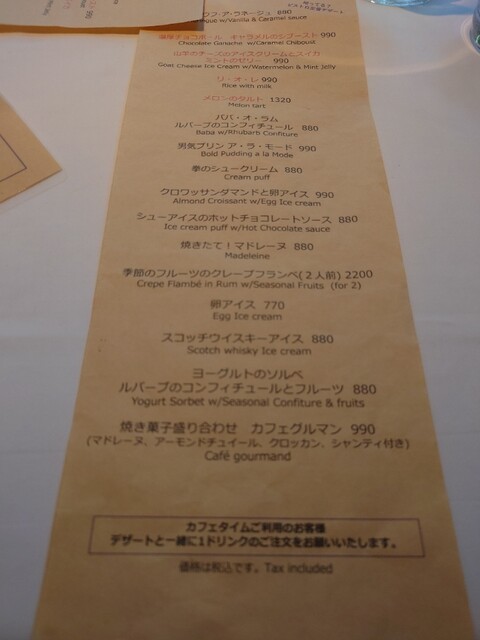 ウフ・ア・ラネージュ 880
w/Vanilla & Caramel sauce
キャラメルのシブースト 990
Chocolate Ganache w/Caramel Chiboust
山羊のチーズのアイスクリームとスイカ
ミントのゼリー 990
Goat Cheese Ice Cream w/Watermelon & Mint Jelly
リ・オ・レ 990
Rice with milk
メロンのタルト 1320
Melon tart
ババ・オ・ラム
ルバーブのコンフィチュール 880
Baba w/Rhubarb Confiture
男気プリン ア・ラ・モード 990
Bold Pudding a la Mode
拳のシュークリーム 880
Cream puff
クロワッサンダマンドと卵アイス 990
Almond Croissant w/Egg Ice cream
シューアイスのホットチョコレートソース 880
Ice cream puff w/Hot Chocolate sauce
焼きたて！マドレーヌ 880
Madeleine
季節のフルーツのクレープフランベ(２人前) 2200
Crepe Flambé in Rum w/Seasonal Fruits (for 2)
卵アイス 770
Egg Ice cream
スコッチウイスキーアイス 880
Scotch whisky Ice cream
ヨーグルトのソルベ
ルバーブのコンフィチュールとフルーツ 880
Yogurt Sorbet w/Seasonal Confiture & fruits
焼き菓子盛り合わせ カフェグルマン 990
(マドレーヌ、アーモンドチュイール、クロッカン、シャンティ付き)
Café gourmand
カフェタイムご利用のお客様
デザートと一緒に1ドリンクのご注文をお願いいたします。
価格は税込です。Tax included